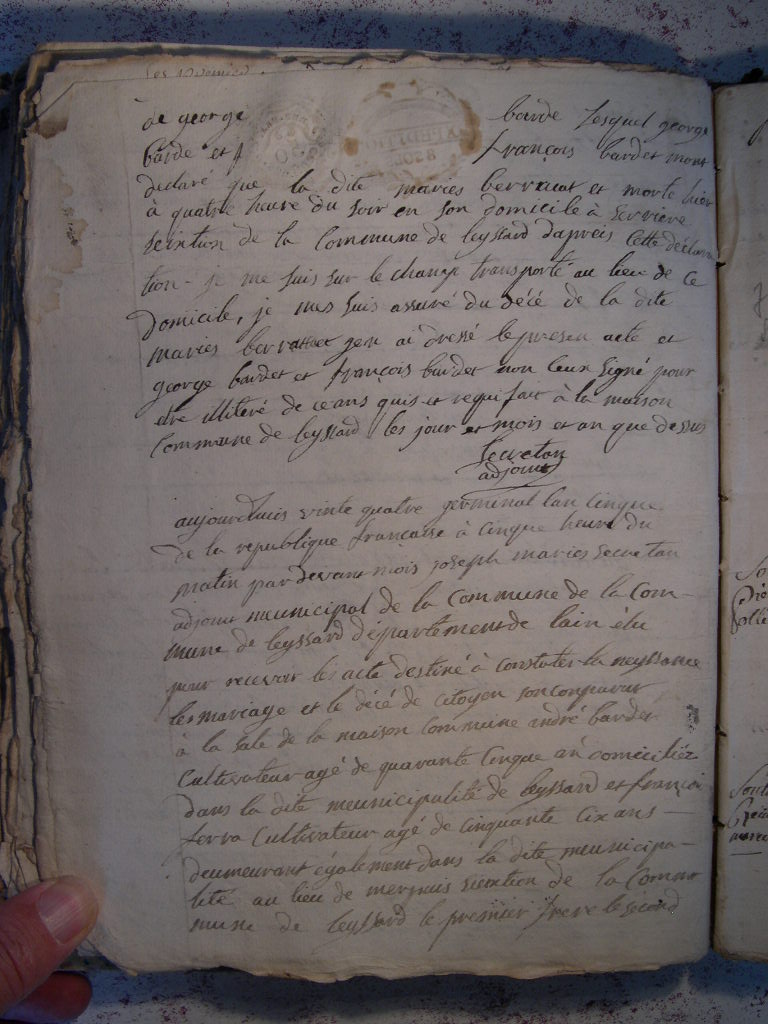 de george barde lesquel george
barde et françois bardet mont
declaré que la dite maries berraut et morte hier
à quatre heure du soir en son domicile à serriere
seintion de la Commune de leyssard dapreis cette declara
tion - je me suis sur le change transporté au lieu de ce
domicile, je mes suis assuré du décé de la dite
maries gen ai dressé le presen acte et
george bardet et françois bardet non leux signé pour
etre illiteré de ce ans quis et requi fait à la maison
Commune de leyssard les jour et mois et an que dessus
Secretan
adjoint
aujourduis vinte quatre germinal lan cinque
de la republique francaise à cinque heure du
matin par devant mois joseph maries Secretan
adjoint meunicipal de la Commune de la Com-
mune de leyssard département de lain élu
pour recevoir les acte destiné à constater la neyssance
les mariage et le décé de citoyen son conparut
à la sale de la maison Commune andré bardet
Cultivateur agé de quarante Cinque an domiciliéz
dans la dite meunicipalité de leyssard et françoi
ferra Cultivateur agé de Cinquante Cix ans -
deumeurant également dans la dite municipa-
lité au lieu de mernus seintion de la Comm
mune de leyssard le premier frere le second